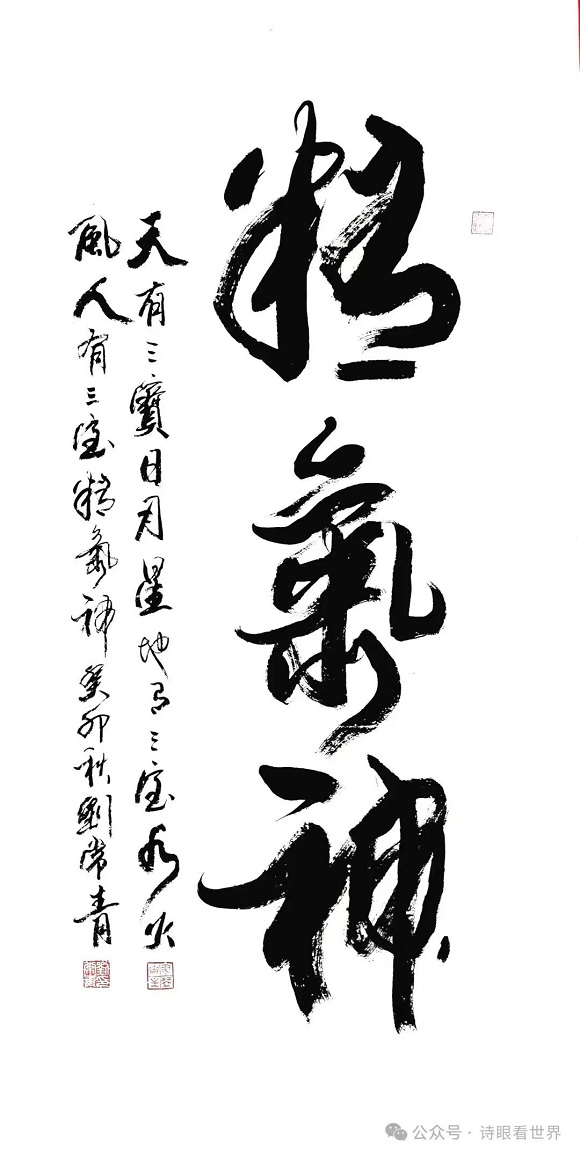 精氣神
天有三寳日月星地有三宝水火
風人有三宝精氣神癸卯秋劉常青
公众号·诗眼看世界